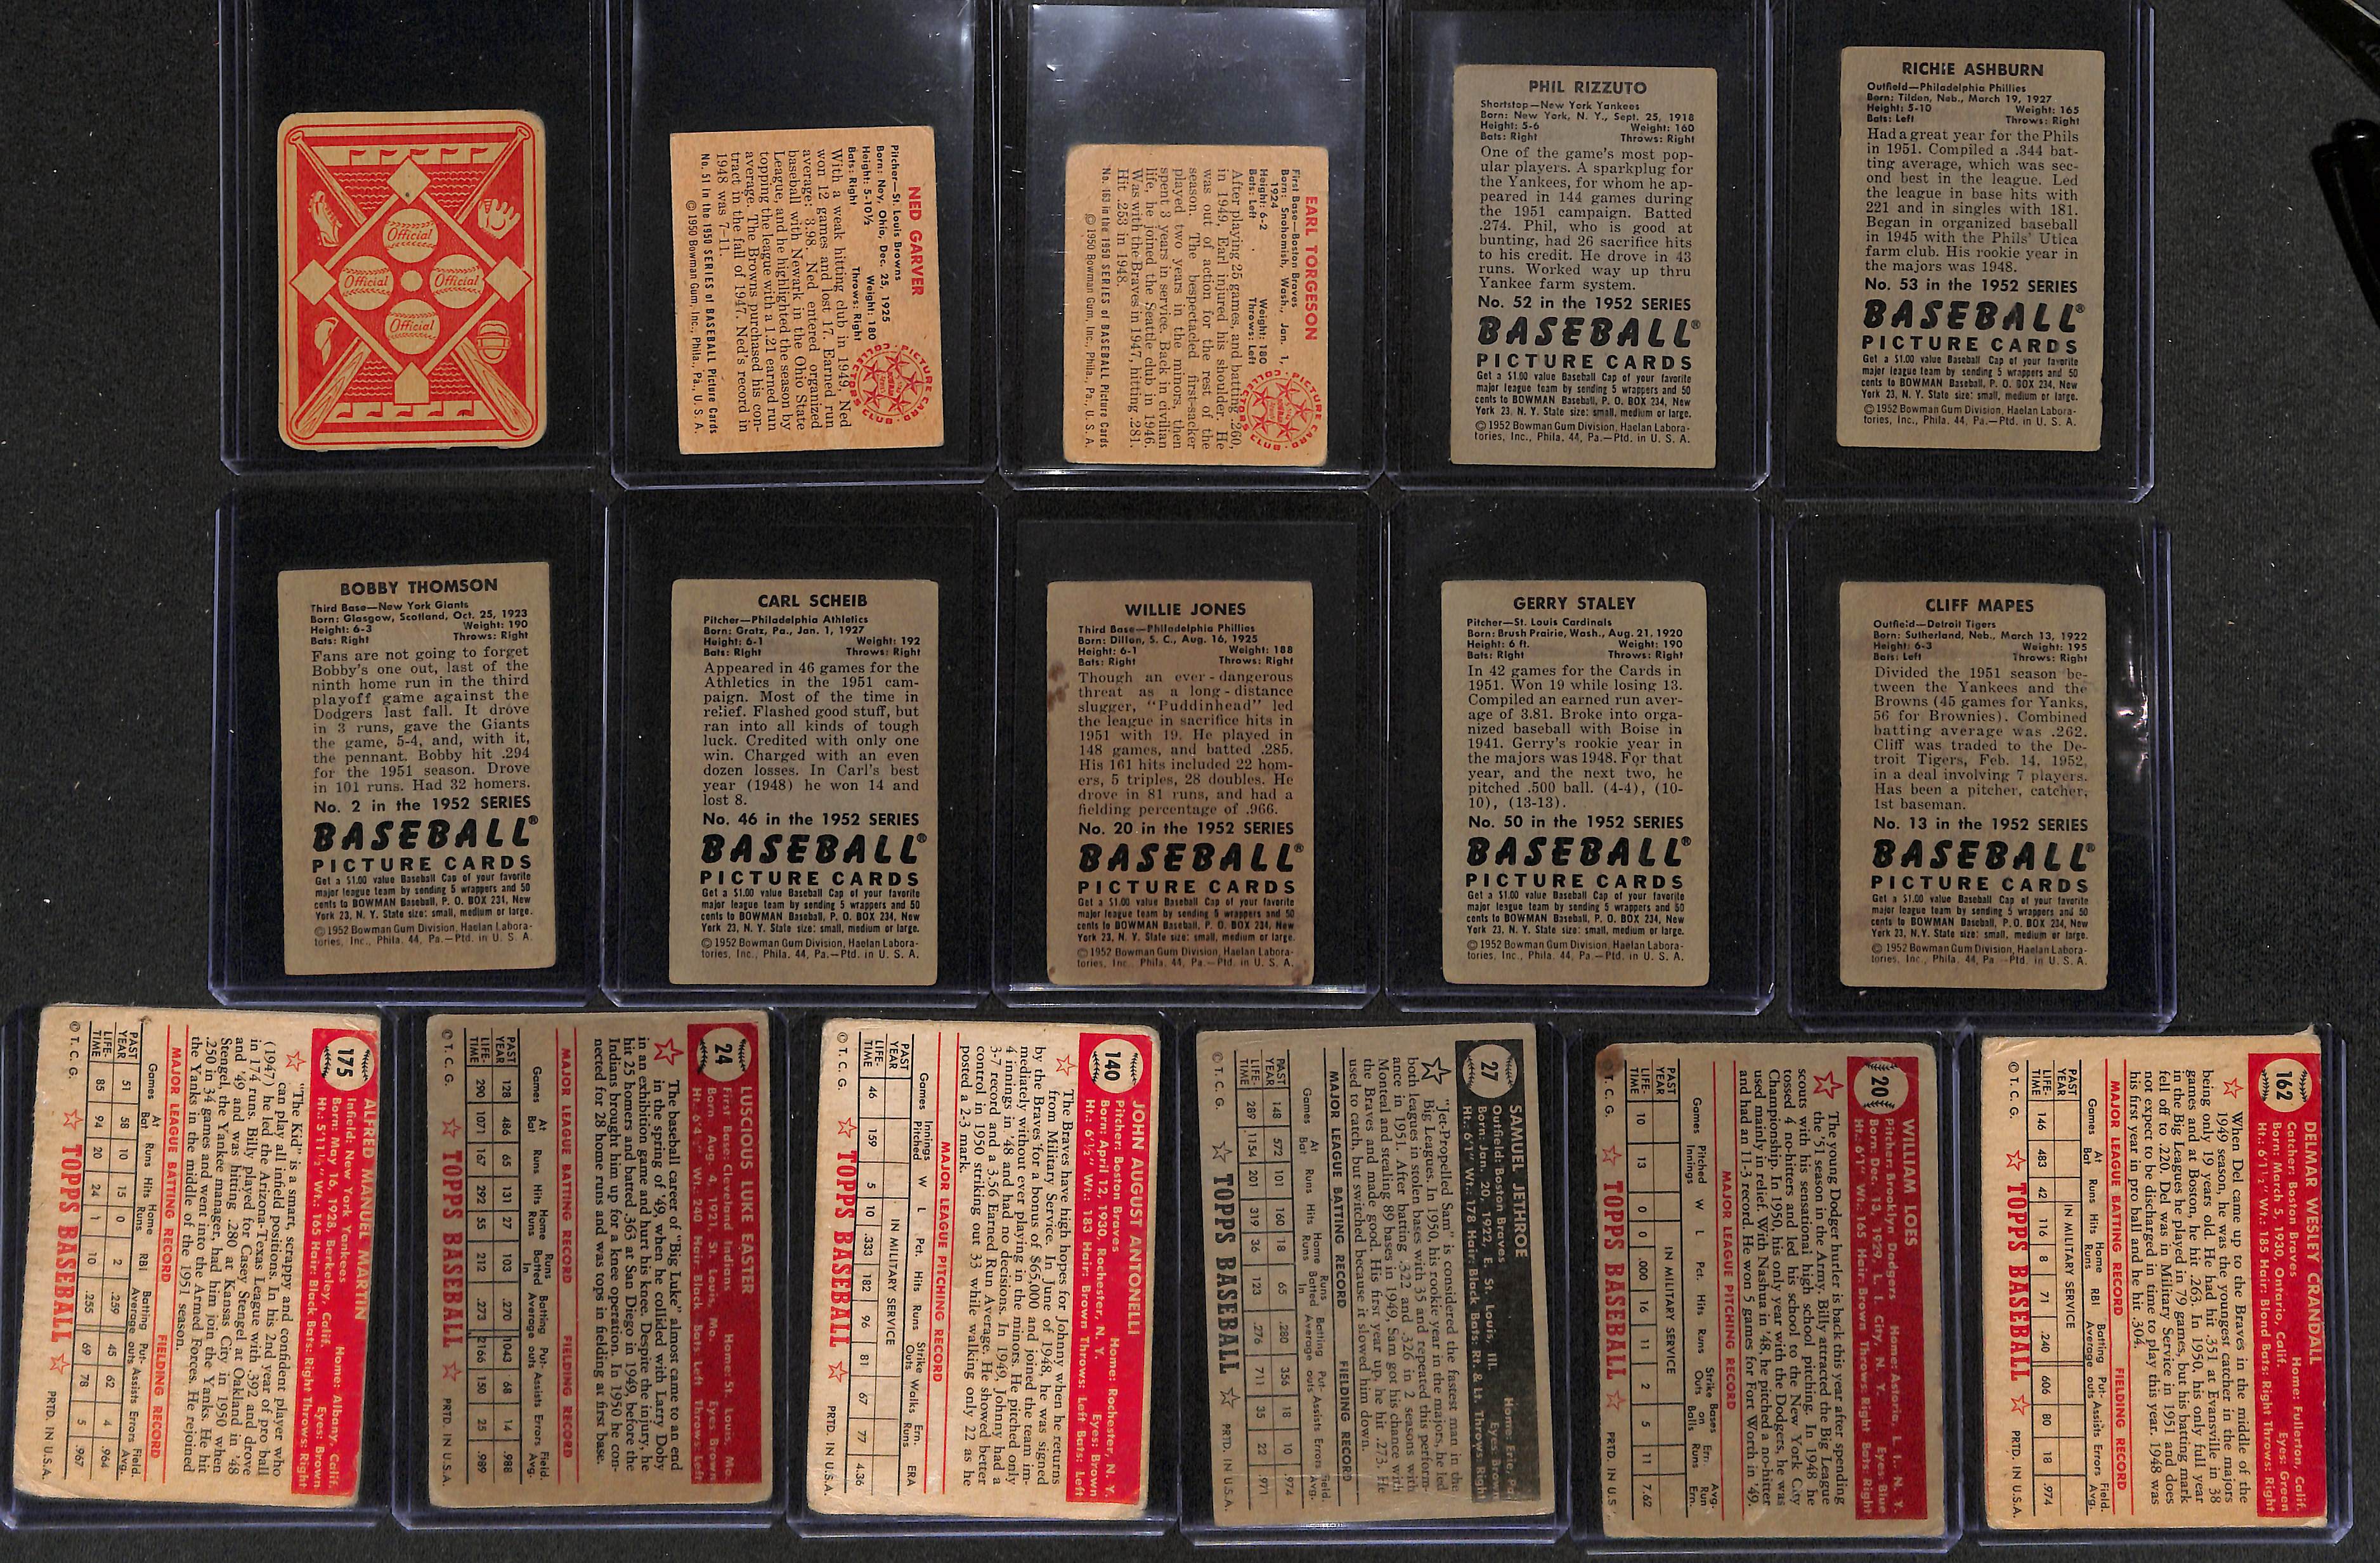 Official
Official
Official
Official
NED GARVER
Pitcher—St. Louis Browns
Born: Ney, Ohio, Dec. 25, 1925
Height: 5-10½ Weight: 180
Bats: Right Throws: Right
With a weak hitting club in 1949, Ned
won 12 games and lost 17. Earned run
average: 3.98. Ned entered organized
baseball with Newark in the Ohio State
League, and he highlighted the season by
topping the league with a 1.21 earned run
average. The Browns purchased his con-
tract in the fall of 1947. Ned's record in
1948 was 7-11.
No. 51 in the 1950 SERIES of BASEBALL Picture Cards
© 1950 Bowman Gum, Inc., Phila., Pa., U. S. A.
PICTURE CARD COLLECTORS CLUB
EARL TORGESON
First Base—Boston Braves
Born: Snohomish, Wash., Jan. 1,
1924
Height: 6-2 Weight: 180
Bats: Left Throws: Left
After playing 25 games, and batting .260,
in 1949, Earl injured his shoulder. He
was out of action for the rest of the
season. The bespectacled first-sacker
played two years in the minors, then
spent 3 years in service. Back in civilian
life, he joined the Seattle club in 1946.
Was with the Braves in 1947, hitting .281.
Hit .253 in 1948.
No. 163 in the 1950 SERIES of BASEBALL Picture Cards
© 1950 Bowman Gum, Inc., Phila., Pa., U. S. A.
PICTURE CARD COLLECTORS CLUB
PHIL RIZZUTO
Shortstop—New York Yankees
Born: New York, N. Y., Sept. 25, 1918
Height: 5-6 Weight: 160
Bats: Right Throws: Right
One of the game's most pop-
ular players. A sparkplug for
the Yankees, for whom he ap-
peared in 144 games during
the 1951 campaign. Batted
.274. Phil, who is good at
bunting, had 26 sacrifice hits
to his credit. He drove in 43
runs. Worked way up thru
Yankee farm system.
No. 52 in the 1952 SERIES
BASEBALL®
PICTURE CARDS
Get a $1.00 value Baseball Cap of your favorite
major league team by sending 5 wrappers and 50
cents to BOWMAN Baseball, P. O. BOX 234, New
York 23, N. Y. State size: small, medium or large.
© 1952 Bowman Gum Division, Haelan Labora-
tories, Inc., Phila. 44, Pa.—Ptd. in U. S. A.
RICHIE ASHBURN
Outfield—Philadelphia Phillies
Born: Tilden, Neb., March 19, 1927
Height: 5-10 Weight: 165
Bats: Left Throws: Right
Had a great year for the Phils
in 1951. Compiled a .344 bat-
ting average, which was sec-
ond best in the league. Led
the league in base hits with
221 and in singles with 181.
Began in organized baseball
in 1945 with the Phils' Utica
farm club. His rookie year in
the majors was 1948.
No. 53 in the 1952 SERIES
BASEBALL®
PICTURE CARDS
Get a $1.00 value Baseball Cap of your favorite
major league team by sending 5 wrappers and 50
cents to BOWMAN Baseball, P. O. BOX 234, New
York 23, N. Y. State size: small, medium or large.
© 1952 Bowman Gum Division, Haelan Labora-
tories, Inc., Phila. 44, Pa.—Ptd. in U. S. A.
BOBBY THOMSON
Third Base—New York Giants
Born: Glasgow, Scotland, Oct. 25, 1923
Height: 6-3 Weight: 190
Bats: Right Throws: Right
Fans are not going to forget
Bobby's one out, last of the
ninth home run in the third
playoff game against the
Dodgers last fall. It drove
in 3 runs, gave the Giants
the game, 5-4, and, with it,
the pennant. Bobby hit .294
for the 1951 season. Drove
in 101 runs. Had 32 homers.
No. 2 in the 1952 SERIES
BASEBALL®
PICTURE CARDS
Get a $1.00 value Baseball Cap of your favorite
major league team by sending 5 wrappers and 50
cents to BOWMAN Baseball, P. O. BOX 231, New
York 23, N. Y. State size: small, medium or large.
© 1952 Bowman Gum Division, Haelan Labora-
tories, Inc., Phila. 44, Pa.—Ptd. in U. S. A.
CARL SCHEIB
Pitcher—Philadelphia Athletics
Born: Gratz, Pa., Jan. 1, 1927
Height: 6-1 Weight: 192
Bats: Right Throws: Right
Appeared in 46 games for the
Athletics in the 1951 cam-
paign. Most of the time in
relief. Flashed good stuff, but
ran into all kinds of tough
luck. Credited with only one
win. Charged with an even
dozen losses. In Carl's best
year (1948) he won 14 and
lost 8.
No. 46 in the 1952 SERIES
BASEBALL®
PICTURE CARDS
Get a $1.00 value Baseball Cap of your favorite
major league team by sending 5 wrappers and 50
cents to BOWMAN Baseball, P. O. BOX 234, New
York 23, N. Y. State size: small, medium or large.
© 1952 Bowman Gum Division, Haelan Labora-
tories, Inc., Phila. 44, Pa.—Ptd. in U. S. A.
WILLIE JONES
Third Base—Philadelphia Phillies
Born: Dillon, S. C., Aug. 16, 1925
Height: 6-1 Weight: 188
Bats: Right Throws: Right
Though an ever-dangerous
threat as a long-distance
slugger, "Puddinhead" led
the league in sacrifice hits in
1951 with 19. He played in
148 games, and batted .285.
His 161 hits included 22 hom-
ers, 5 triples, 28 doubles. He
drove in 81 runs, and had a
fielding percentage of .966.
No. 20 in the 1952 SERIES
BASEBALL®
PICTURE CARDS
Get a $1.00 value Baseball Cap of your favorite
major league team by sending 5 wrappers and 50
cents to BOWMAN Baseball, P. O. BOX 234, New
York 23, N. Y. State size: small, medium or large.
© 1952 Bowman Gum Division, Haelan Labora-
tories, Inc., Phila. 44, Pa.—Ptd. in U. S. A.
GERRY STALEY
Pitcher—St. Louis Cardinals
Born: Brush Prairie, Wash., Aug. 21, 1920
Height: 6 ft. Weight: 190
Bats: Right Throws: Right
In 42 games for the Cards in
1951. Won 19 while losing 13.
Compiled an earned run aver-
age of 3.81. Broke into orga-
nized baseball with Boise in
1941. Gerry's rookie year in
the majors was 1948. For that
year, and the next two, he
pitched .500 ball. (4-4), (10-
10), (13-13).
No. 50 in the 1952 SERIES
BASEBALL®
PICTURE CARDS
Get a $1.00 value Baseball Cap of your favorite
major league team by sending 5 wrappers and 50
cents to BOWMAN Baseball, P. O. BOX 234, New
York 23, N. Y. State size: small, medium or large.
© 1952 Bowman Gum Division, Haelan Labora-
tories, Inc., Phila. 44, Pa.—Ptd. in U. S. A.
CLIFF MAPES
Outfield—Detroit Tigers
Born: Sutherland, Neb., March 13, 1922
Height: 6-3 Weight: 195
Bats: Left Throws: Right
Divided the 1951 season be-
tween the Yankees and the
Browns (45 games for Yanks,
56 for Brownies). Combined
batting average was .262.
Cliff was traded to the De-
troit Tigers, Feb. 14, 1952,
in a deal involving 7 players.
Has been a pitcher, catcher,
1st baseman.
No. 13 in the 1952 SERIES
BASEBALL®
PICTURE CARDS
Get a $1.00 value Baseball Cap of your favorite
major league team by sending 5 wrappers and 50
cents to BOWMAN Baseball, P. O. BOX 234, New
York 23, N. Y. State size: small, medium or large.
© 1952 Bowman Gum Division, Haelan Labora-
tories, Inc., Phila. 44, Pa—Ptd. in U. S. A.
175
ALFRED MANUEL MARTIN
Infield: New York Yankees Home: Albany, Calif.
Born: May 16, 1928, Berkeley, Calif. Eyes: Brown
Ht.: 5'11½" Wt.: 165 Hair: Black Bats: Right Throws: Right
"The Kid" is a smart, scrappy and confident player who
can play all infield positions. In his 2nd year of pro ball
(1947) he led the Arizona-Texas League with .392 and drove
in 174 runs. Billy played for Casey Stengel at Oakland in '48
and '49 and was hitting .280 at Kansas City in 1950 when
Stengel, the Yankee manager, had him join the Yanks. He hit
.250 in 34 games and went into the Armed Forces. He rejoined
the Yanks in the middle of the 1951 season.
MAJOR LEAGUE BATTING RECORD FIELDING RECORD
Games At Bat Runs Hits Home Runs RBI Batting Average Put-outs Assists Errors Field. Avg.
PAST YEAR 51 58 10 15 0 2 .259 45 62 4 .964
LIFE-TIME 85 94 20 24 1 10 .255 69 78 5 .967
© T. C. G. TOPPS BASEBALL PRTD. IN U.S.A.
24
LUSCIOUS LUKE EASTER
First Base: Cleveland Indians Home: St. Louis, Mo.
Born: Aug. 4, 1921, St. Louis, Mo. Eyes: Brown
Ht.: 6'4½" Wt.: 240 Hair: Black Bats: Left Throws: Left
The baseball career of "Big Luke" almost came to an end
in the spring of '49, when he collided with Larry Doby
in an exhibition game and hurt his knee. Despite the injury, he
hit 25 homers and batted .363 at San Diego in 1949, before the
Indians brought him up for a knee operation. In 1950 he con-
nected for 28 home runs and was tops in fielding at first base.
MAJOR LEAGUE BATTING RECORD FIELDING RECORD
Games At Bat Runs Hits Home Runs Runs Batted In Batting Average Put-outs Assists Errors Field. Avg.
PAST YEAR 128 486 65 131 27 103 .270 1043 68 14 .988
LIFE-TIME 290 1071 167 292 55 212 .273 2166 150 25 .989
© T. C. G. TOPPS BASEBALL PRTD. IN U.S.A.
140
JOHN AUGUST ANTONELLI
Pitcher: Boston Braves Home: Rochester, N. Y.
Born: April 12, 1930, Rochester, N. Y. Eyes: Brown
Ht.: 6'½" Wt.: 183 Hair: Brown Throws: Left Bats: Left
The Braves have high hopes for Johnny when he returns
from Military Service. In June of 1948, he was signed
by the Braves for a bonus of $65,000 and joined the team im-
mediately without ever playing in the minors. He pitched only
4 innings in '48 and had no decisions. In 1949, Johnny had a
3-7 record and a 3.56 Earned Run Average. He showed better
control in 1950 striking out 33 while walking only 22 as he
posted a 2-3 mark.
MAJOR LEAGUE PITCHING RECORD
Games Innings Pitched W L Pct. Hits Runs Strike Outs Walks Ern. Runs ERA
PAST YEAR IN MILITARY SERVICE
LIFE-TIME 46 159 5 10 .333 182 96 81 67 77 4.36
© T. C. G. TOPPS BASEBALL PRTD. IN U.S.A.
27
SAMUEL JETHROE
Outfield: Boston Braves Home: Erie, Pa.
Born: Jan. 20, 1922, E. St. Louis, Ill. Eyes: Brown
Ht.: 6'1" Wt.: 178 Hair: Black Bats: Rt. & Lt. Throws: Right
"Jet-Propelled Sam" is considered the fastest man in the
Big Leagues. In 1950, his rookie year in the majors, he led
both leagues in stolen bases with 35 and repeated this perform-
ance in 1951. After batting .322 and .326 in 2 seasons with
Monteal and stealing 89 bases in 1949, Sam got his chance with
the Braves and made good. His first year up, he hit .273. He
used to catch, but switched because it slowed him down.
MAJOR LEAGUE BATTING RECORD FIELDING RECORD
Games At Bat Runs Hits Home Runs Runs Batted In Batting Average Put-outs Assists Errors Field. Avg.
148 572 101 160 18 65 .280 356 18 10 .974
289 1154 201 319 36 123 .276 711 35 22 .971
© T. C. G. TOPPS BASEBALL PRTD. IN U.S.A.
20
WILLIAM LOES
Pitcher: Brooklyn Dodgers Home: Astoria, L. I., N. Y.
Born: Dec. 13, 1929, L. I. City, N. Y. Eyes: Blue
Ht.: 6'1" Wt.: 165 Hair: Brown Throws: Right Bats: Right
The young Dodger hurler is back this year after spending
the '51 season in the Army. Billy attracted the Big League
scouts with his sensational high school pitching. In 1948 he
tossed 4 no-hitters and led his school to the New York City
Championship. In 1950, his only year with the Dodgers, he was
used mainly in relief. With Nashua in '48, he pitched a no-hitter
and had an 11-3 record. He won 5 games for Fort Worth in '49.
MAJOR LEAGUE PITCHING RECORD
Games Pitched Innings W L Pct. Hits Runs Strike Outs Bases on Balls Ern. Runs Avg. Ern.
PAST YEAR IN MILITARY SERVICE
LIFE-TIME 10 13 0 0 .000 16 11 2 5 11 7.62
© T. C. G. TOPPS BASEBALL PRTD. IN U.S
162
DELMAR WESLEY CRANDALL
Catcher: Boston Braves Home: Fullerton, Calif.
Born: March 5, 1930, Ontario, Calif. Eyes: Green
Ht.: 6'1½" Wt.: 185 Hair: Blond Bats: Right Throws: Right
When Del came up to the Braves in the middle of the
1949 season, he was the youngest catcher in the majors
being only 19 years old. He had hit .351 at Evansville in 38
games and at Boston, he hit .263. In 1950, his only full year
in the Big Leagues he played in 79 games, but his batting mark
fell off to .220. Del was in Military Service in 1951 and does
not expect to be discharged in time to play this year. 1948 was
his first year in pro ball and he hit .304.
MAJOR LEAGUE BATTING RECORD FIELDING RECORD
Games At Bat Runs Hits Home Runs RBI Batting Average Put-outs Assists Errors Field. Avg.
PAST YEAR IN MILITARY SERVICE
LIFE-TIME 146 483 42 116 8 71 .240 606 80 18 .974
© T. C. G. TOPPS BASEBALL PRTD. IN U.S.A.